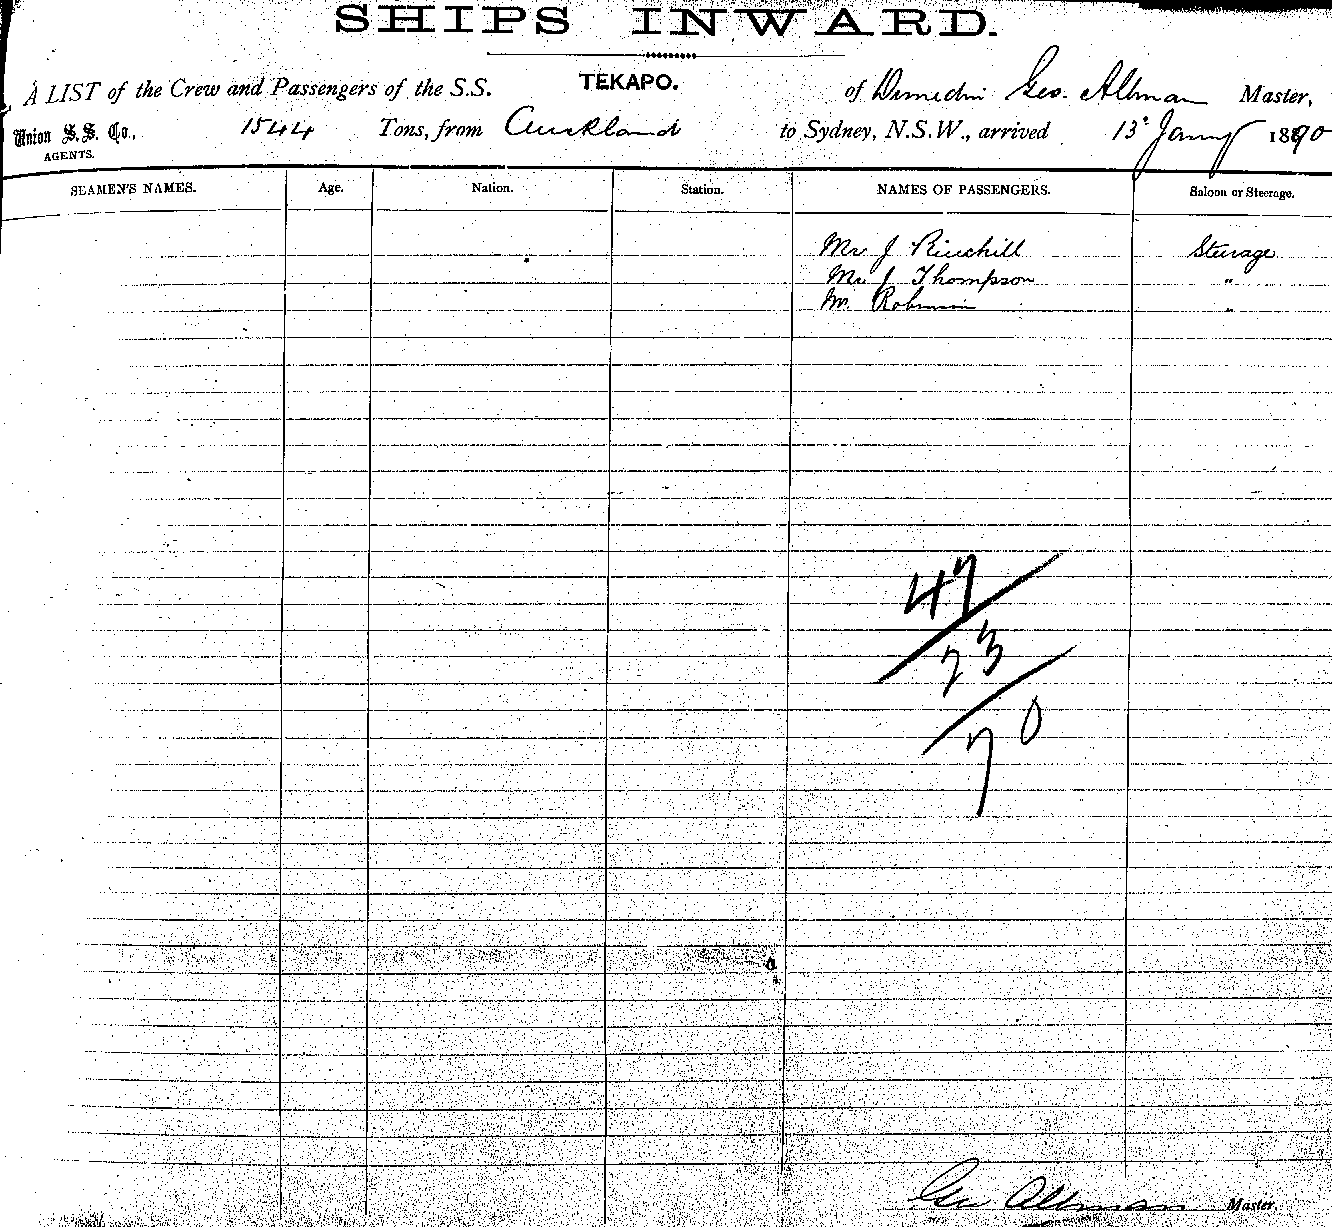 SHIPS INWARD.
A LIST of the Crew and Passengers of the S.S. TEKAPO. of Dunedin Geo. Allman Master,
Union S.S. Co., AGENTS. 1544 Tons, from Auckland to Sydney, N.S.W., arrived 13th Jany 1890
SEAMEN'S NAMES. Age. Nation. Station. NAMES OF PASSENGERS. Saloon or Steerage.
Mr J Steerage
Mr J Thompson "
Mr. Robinson "
47
23
70
Geo Allman Master.